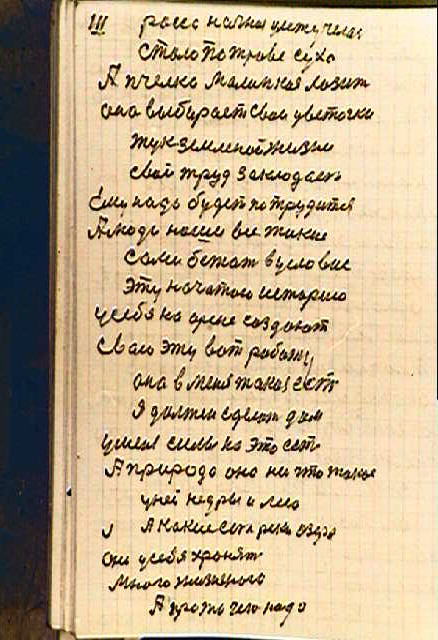 III роса
стало по траве сухо
А пчелка маленькая лазит
она выбирает свои цветочки
жук земляной жизни
свой труд закладает
Ему надо будет потрудится
А люди наши все такие
Сами бежат в условие
эту начатою историю
у себя на арене создают
Свою эту вот работу
она в меня такая есть
Я должен сделать дом
у меня силы на это есть
А природа она на что такая
у ней недры и леса
А какие есть реки озера
Они у себя хранят
много жизненого
А грожа чего надо